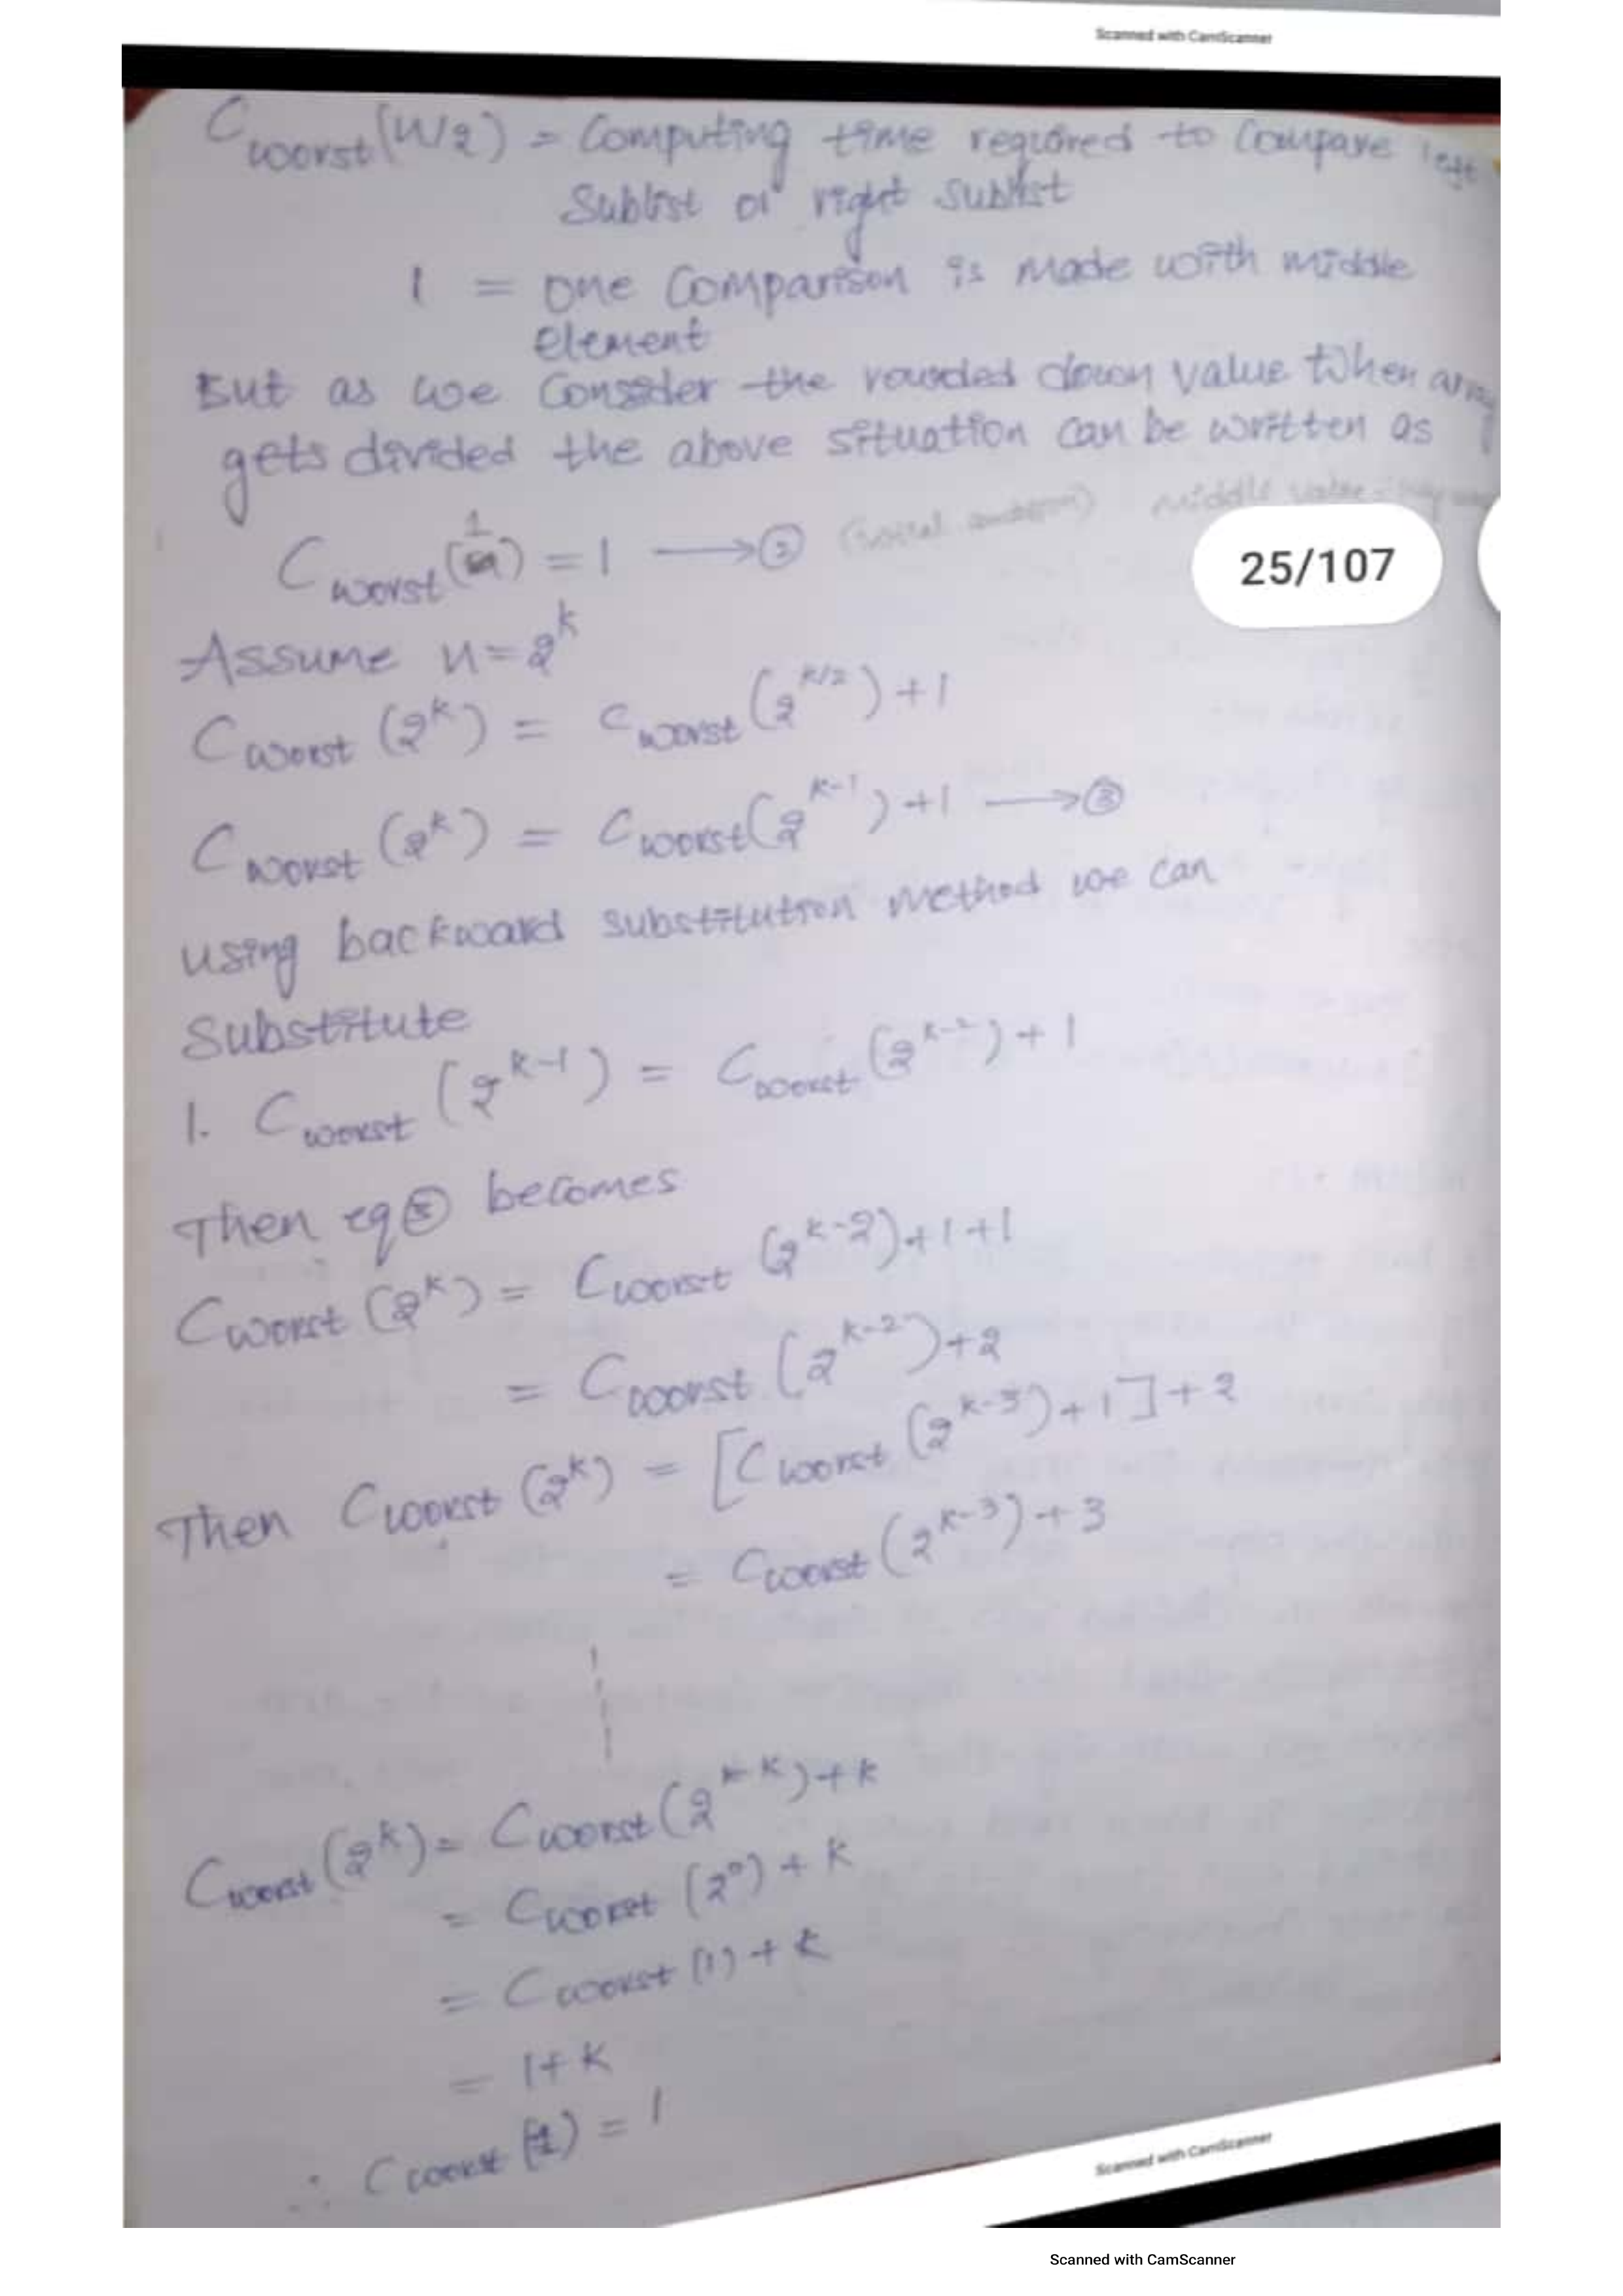 Scanned with CamScanner
C worst (n/2) = Computing time required to compare left
Sublist or right sublist
1 = one comparison is made with middle
element
But as we Consider the rounded down value when array
gets divided the above situation can be written as
C worst (1) = 1 → ②
Assume n = 2^k
C worst (2^k) = C worst (2^k/2) + 1
C worst (2^k) = C worst (2^k-1) + 1 → ③
25/107
using backward substitution method we can
Substitute
1. C worst (2^k-1) = C worst (2^k-2) + 1
Then eq ③ becomes
C worst (2^k) = C worst (2^k-2) + 1 + 1
= C worst (2^k-2) + 2
Then C worst (2^k) = [C worst (2^k-3) + 1] + 2
= C worst (2^k-3) + 3
C worst (2^k) = C worst (2^k-k) + k
= C worst (2^0) + k
= C worst (1) + k
= 1 + k
∴ C worst (1) = 1
Scanned with CamScanner
Scanned with CamScanner